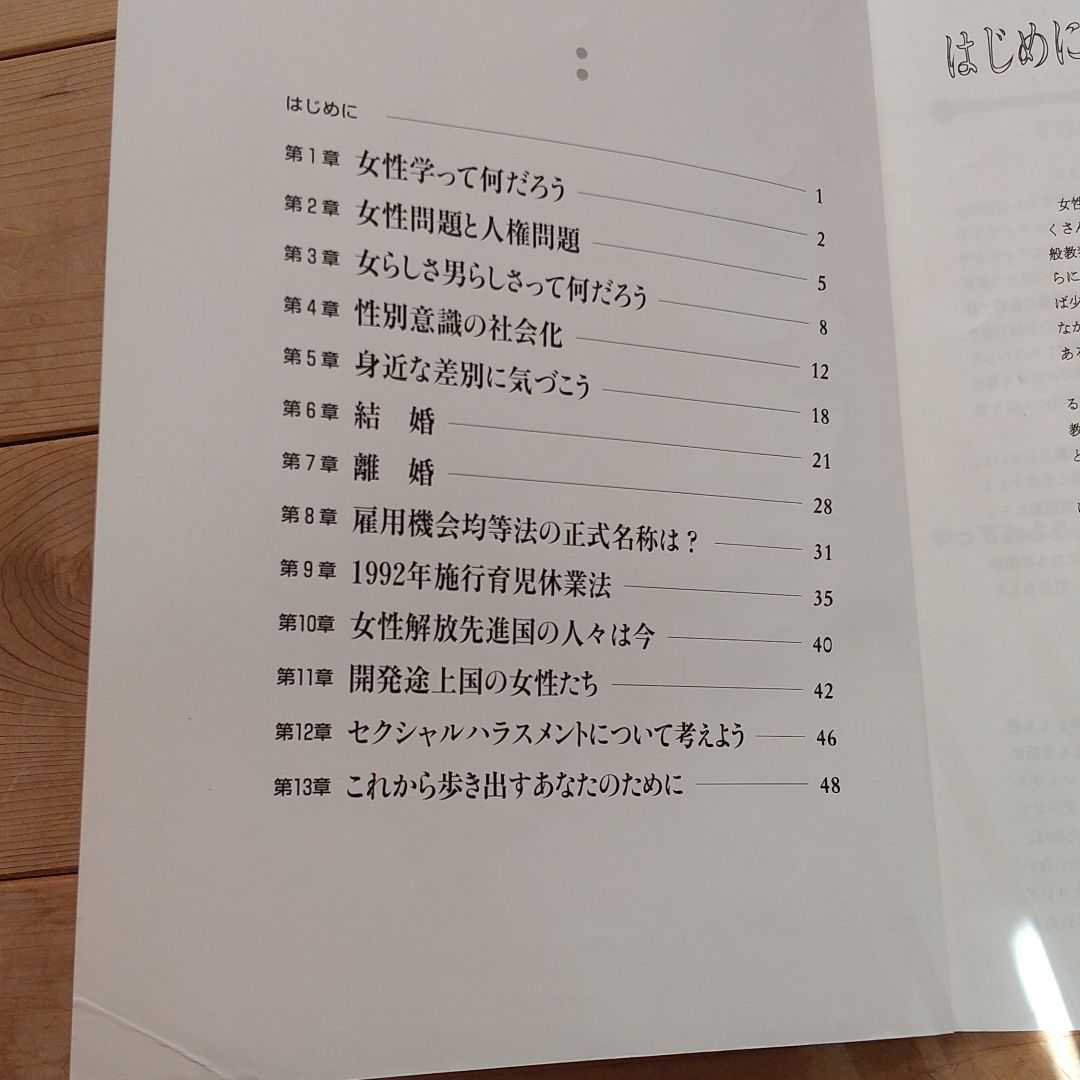 はじめに 1
第1章 女性学って何だろう 2
第2章 女性問題と人権問題 5
第3章 女らしさ男らしさって何だろう 8
第4章 性別意識の社会化 12
第5章 身近な差別に気づこう 18
第6章 結 婚 21
第7章 離 婚 28
第8章 雇用機会均等法の正式名称は? 31
第9章 1992年施行育児休業法 35
第10章 女性解放先進国の人々は今 40
第11章 開発途上国の女性たち 42
第12章 セクシャルハラスメントについて考えよう 46
第13章 これから歩き出すあなたのために 48
はじめに
女性
くさん
般教
らに
ば少
なか
ある
る
教
と